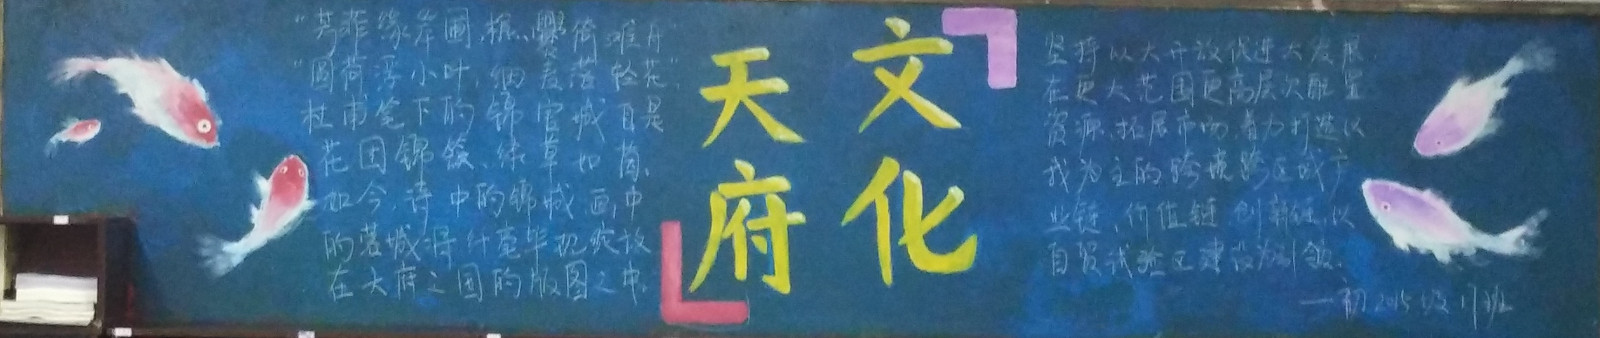 "芳菲缘岸圃,樵爨倚滩舟"
"圆荷浮小叶,细麦落轻花".
杜甫笔下的锦官城自是
花团锦簇、绿草如茵,
如今,诗中的锦城,画中
的蓉城将什毫毕现绽放
在天府之国的版图之中.
天府
文化
坚持以大开放促进大发展,
在更大范围更高层次配置
资源,拓展市场,着力打造以
我为主的跨境跨区域产
业链、价值链、创新链,以
自贸试验区建设为引领.
—初2015级17班